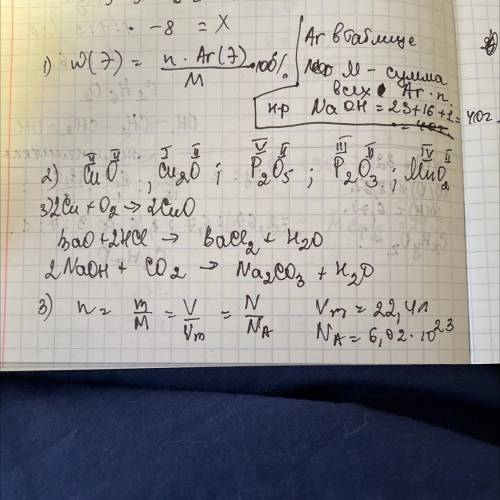 · -8 = X
1) W(Э) = n · Ar(Э) / M · 100%
Ar в таблице
M - сумма
всех Ar · n
нр NaOH = 23+16+1 = 40г
2) CuO ; Cu₂O ; P₂O₅ ; P₂O₃ ; MnO₂
II II I II V II III II IV II
3) 2Cu + O₂ → 2CuO
BaO + 2HCl → BaCl₂ + H₂O
2NaOH + CO₂ → Na₂CO₃ + H₂O
3) n = m/M = V/Vm = N/NA
Vm = 22,4л
NA = 6,02 · 10²³